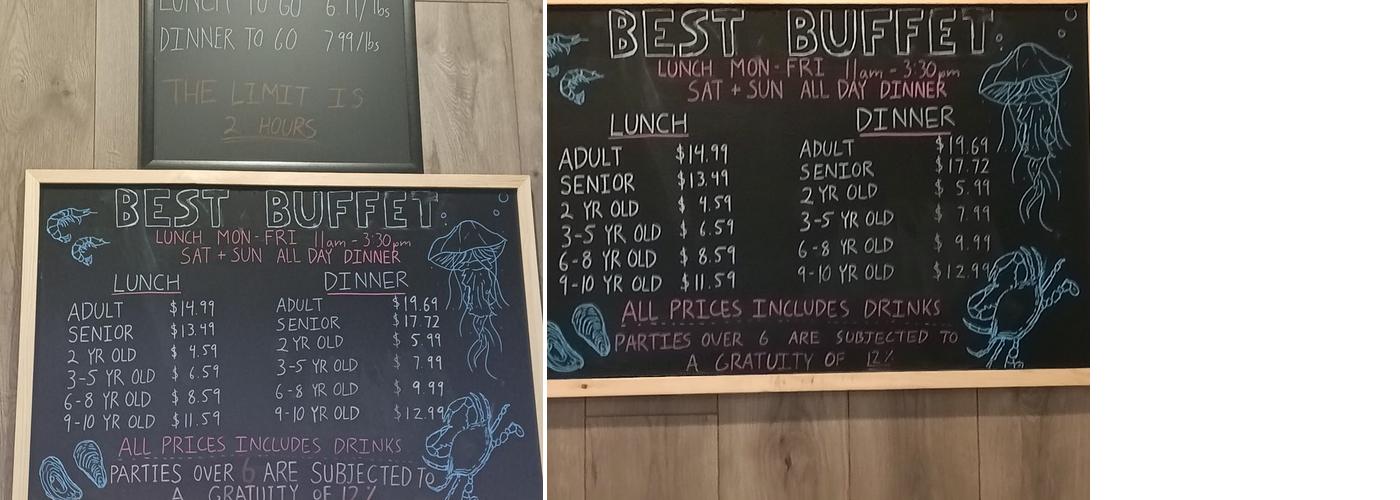 LUNCH TO GO 6.11/lbs
DINNER TO GO 7 99/lbs
THE LIMIT IS
2 HOURS
BEST BUFFET
LUNCH MON-FRI 11am - 3:30pm
SAT + SUN ALL DAY DINNER
LUNCH
ADULT $14.99
SENIOR $13.49
2 YR OLD $ 4.59
3-5 YR OLD $ 6.59
6-8 YR OLD $ 8.59
9-10 YR OLD $11.59
DINNER
ADULT $19.69
SENIOR $17.72
2 YR OLD $ 5.99
3-5 YR OLD $ 7.99
6-8 YR OLD $ 9.99
9-10 YR OLD $12.99
ALL PRICES INCLUDES DRINKS
PARTIES OVER 6 ARE SUBJECTED TO
A GRATUITY OF 12%
BEST BUFFET
LUNCH MON-FRI 11am - 3:30pm
SAT + SUN ALL DAY DINNER
LUNCH
ADULT $14.99
SENIOR $13.49
2 YR OLD $ 4.59
3-5 YR OLD $ 6.59
6-8 YR OLD $ 8.59
9-10 YR OLD $11.59
DINNER
ADULT $19.69
SENIOR $17.72
2 YR OLD $ 5.99
3-5 YR OLD $ 7.99
6-8 YR OLD $ 9.99
9-10 YR OLD $12.99
ALL PRICES INCLUDES DRINKS
PARTIES OVER 6 ARE SUBJECTED TO
A GRATUITY OF 12%